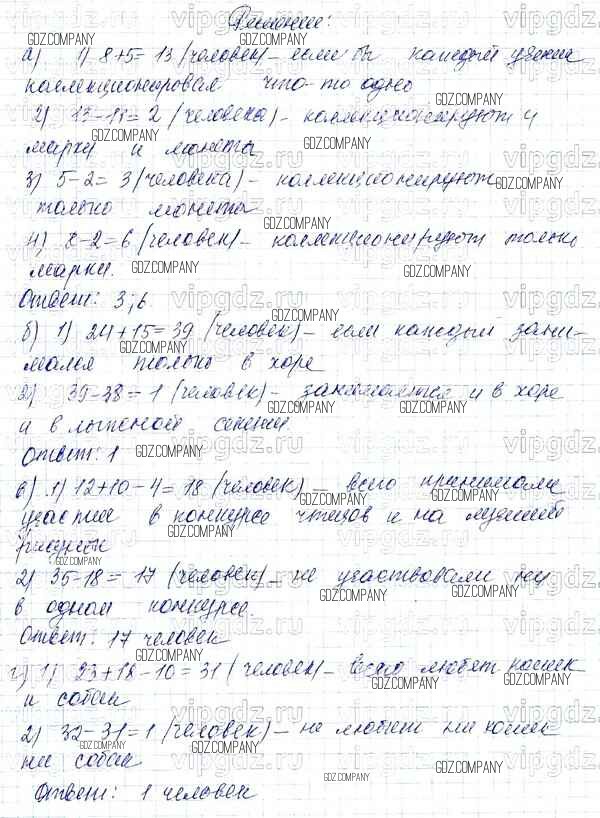 Решение:
а) 1) 8+5=13 (человек) – если бы каждый ученик
коллекционировал что-то одно
2) 13-11=2 (человека) – коллекционируют и
марки и монеты
3) 5-2=3 (человека) – коллекционируют
только монеты
4) 8-2=6 (человек) – коллекционируют только
марки.
Ответ: 3; 6.
б) 1) 24+15=39 (человек) – если каждый зани-
мался только в хоре
2) 39-38=1 (человек) – занимается и в хоре
и в лыжной секции.
Ответ: 1
в) 1) 12+10-4=18 (человек) – всего принимали
участие в конкурсе чтецов и на лучший
рисунок
2) 35-18=17 (человек) – не участвовали ни
в одном конкурсе.
Ответ: 17 человек
г) 1) 23+18-10=31 (человек) – всего любят кошек
и собак
2) 32-31=1 (человек) – не любит ни кошек
ни собак
Ответ: 1 человек